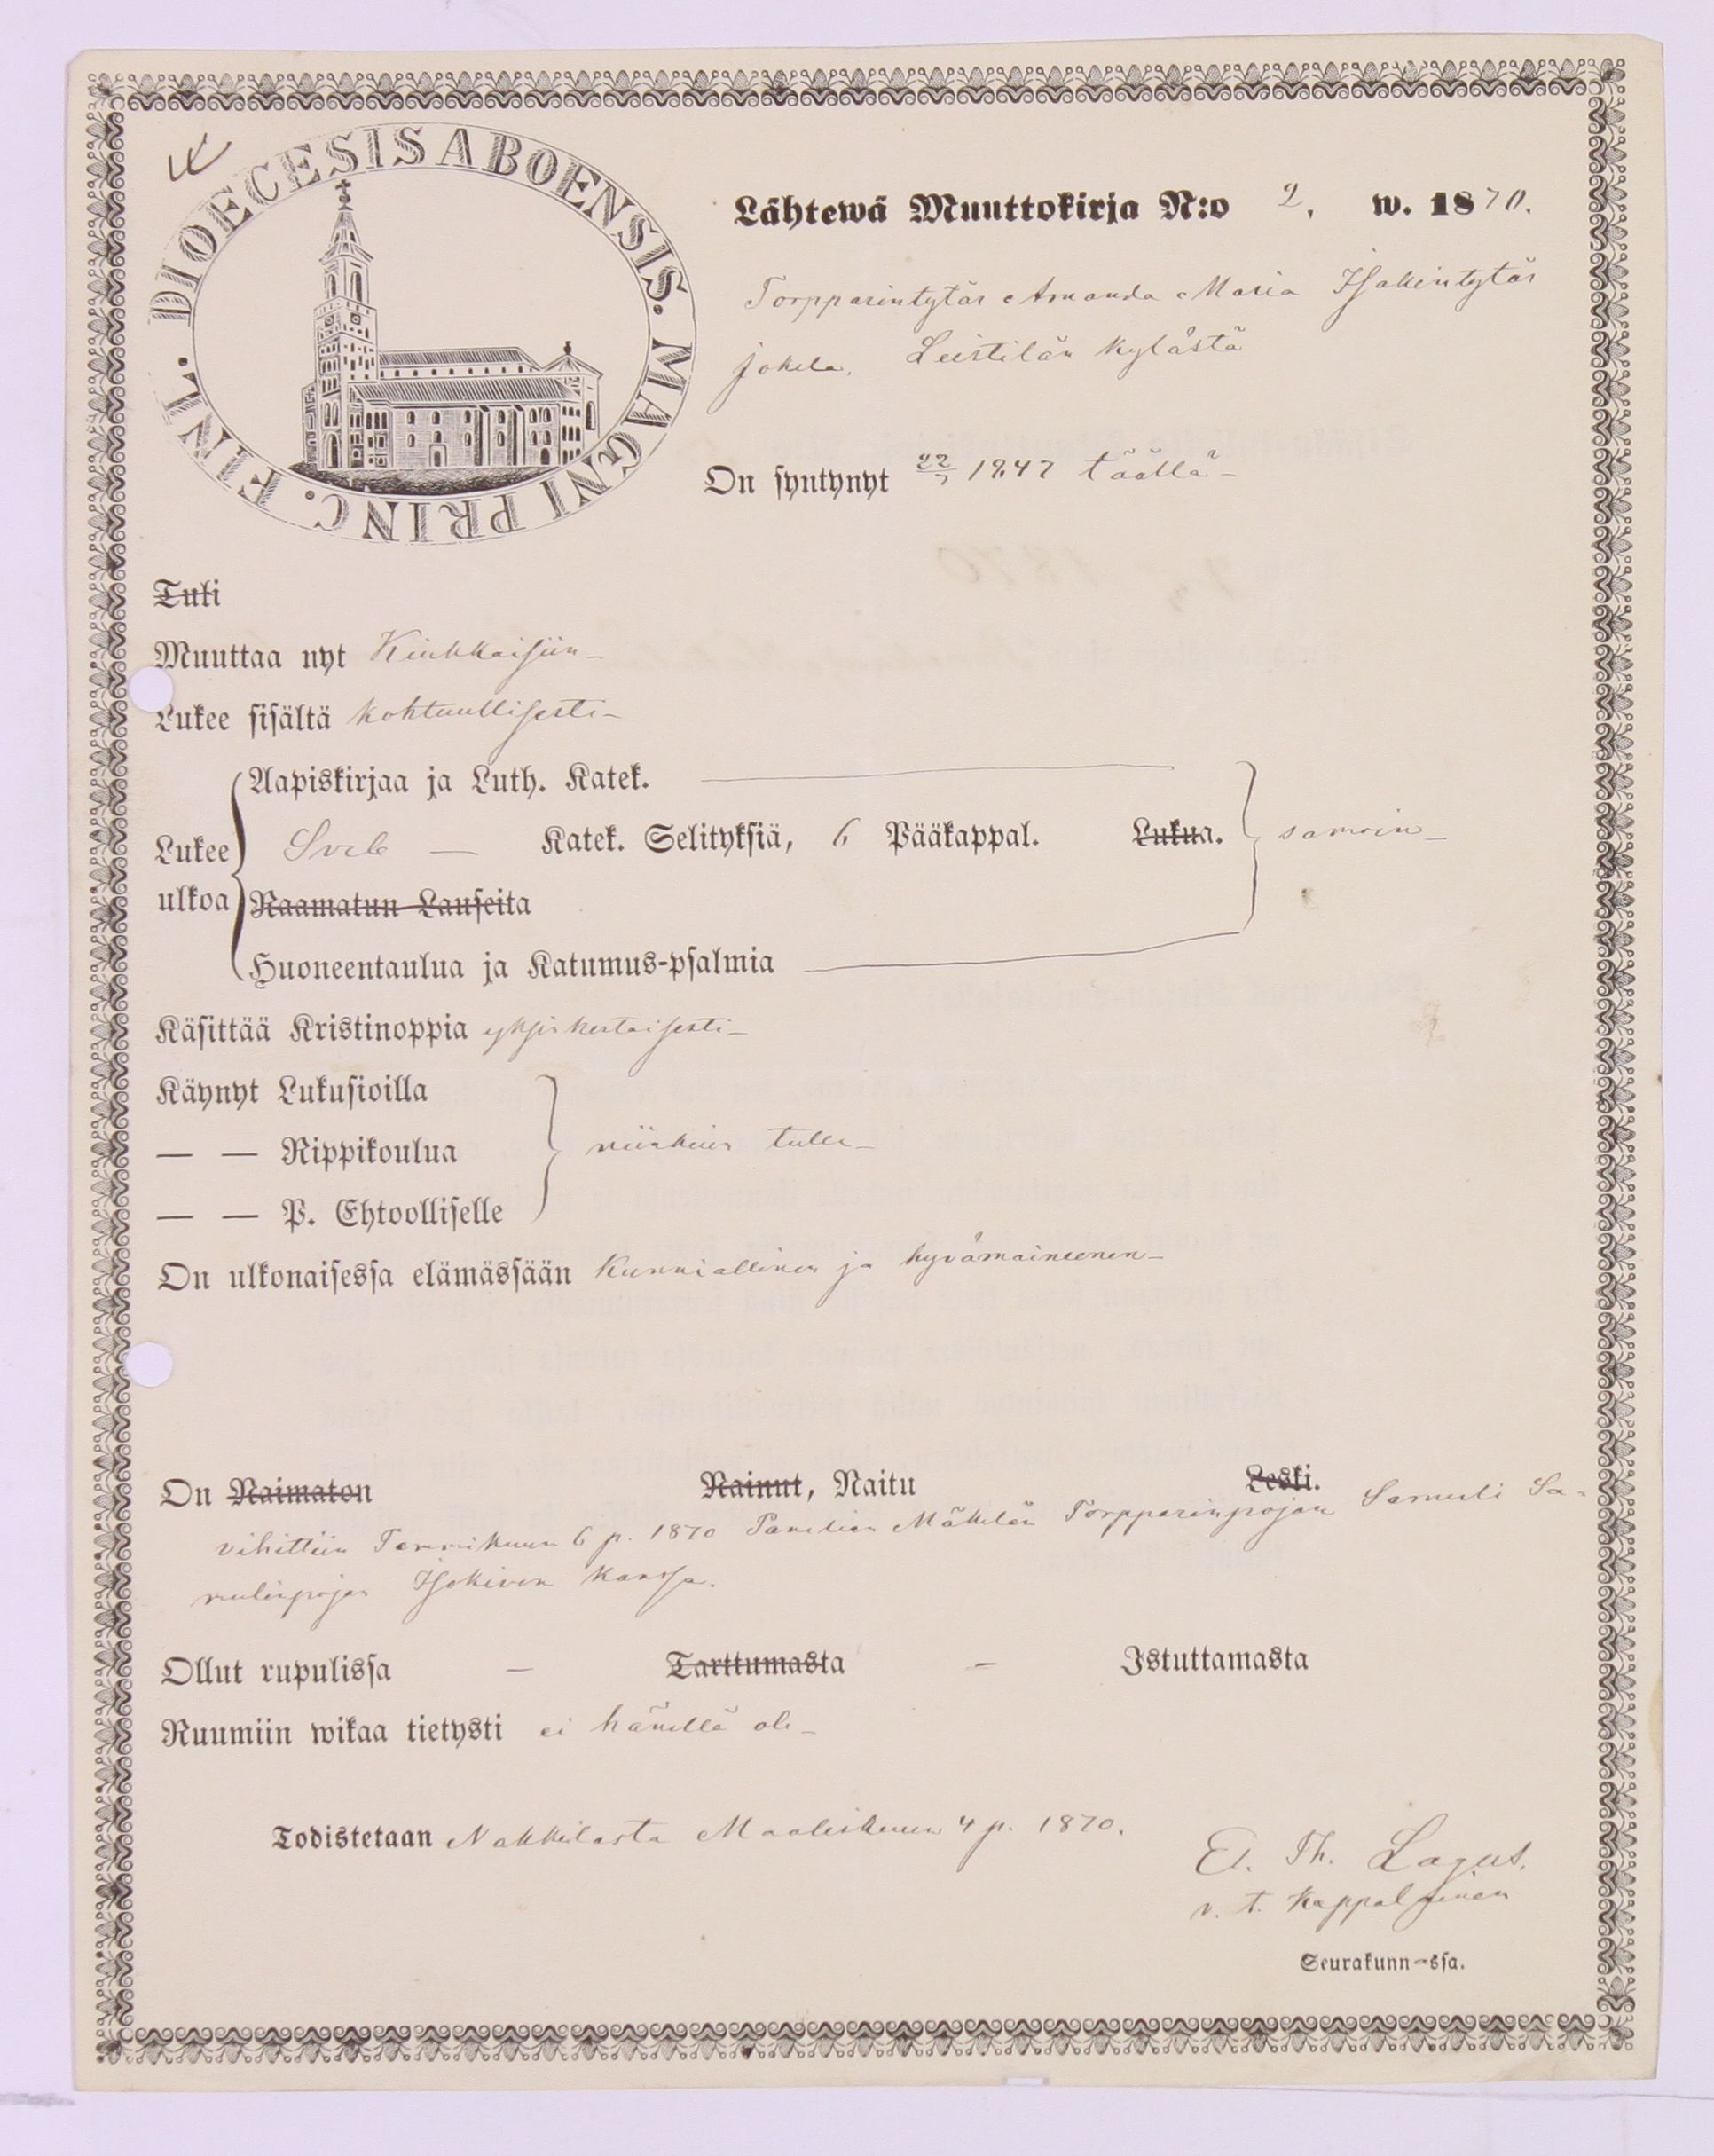 DIOECESIS ABOENSIS. MAGNI PRINC. FINL.
Lähtewä Muuttokirja N:o 2. w. 1870.
Torpparintytär Amanda Maria Isakintytär
Jokela. Leistilän kylästä
On syntynyt 22/3 1847 täällä –
Tuli
Muuttaa nyt Kiukkaisiin –
Lukee sisältä kohtuullisesti –
Aapiskirjaa ja Luth. Katek.
Lukee ulkoa Sveb – Katek. Selityksiä, 6 Pääkappal. Lukua. samoin –
Raamatun Lauseita
Huoneentaulua ja Katumus-psalmia
Käsittää Kristinoppia yksinkertaisesti –
Käynyt Lukusioilla
— — Rippikoulua niinkuin tulee –
— — P. Ehtoolliselle
On ulkonaisessa elämässään kunniallinen ja hyvämaineenen –
On Naimaton Nainut, Naitu Leski.
vihittiin Tammikuun 6 p. 1870 Panelian Mäkelän Torpparinpojan Samuli Sa-
mulinpojan Isokiven kanssa.
Ollut rupulissa – Tarttumasta – Istuttamasta
Ruumiin wikaa tietysti ei hänellä ole –
Todistetaan Nakkilasta Maaliskuun 4 p. 1870.
El. Th. Lagus.
v. t. Kappalainen
Seurakunn-ssa.